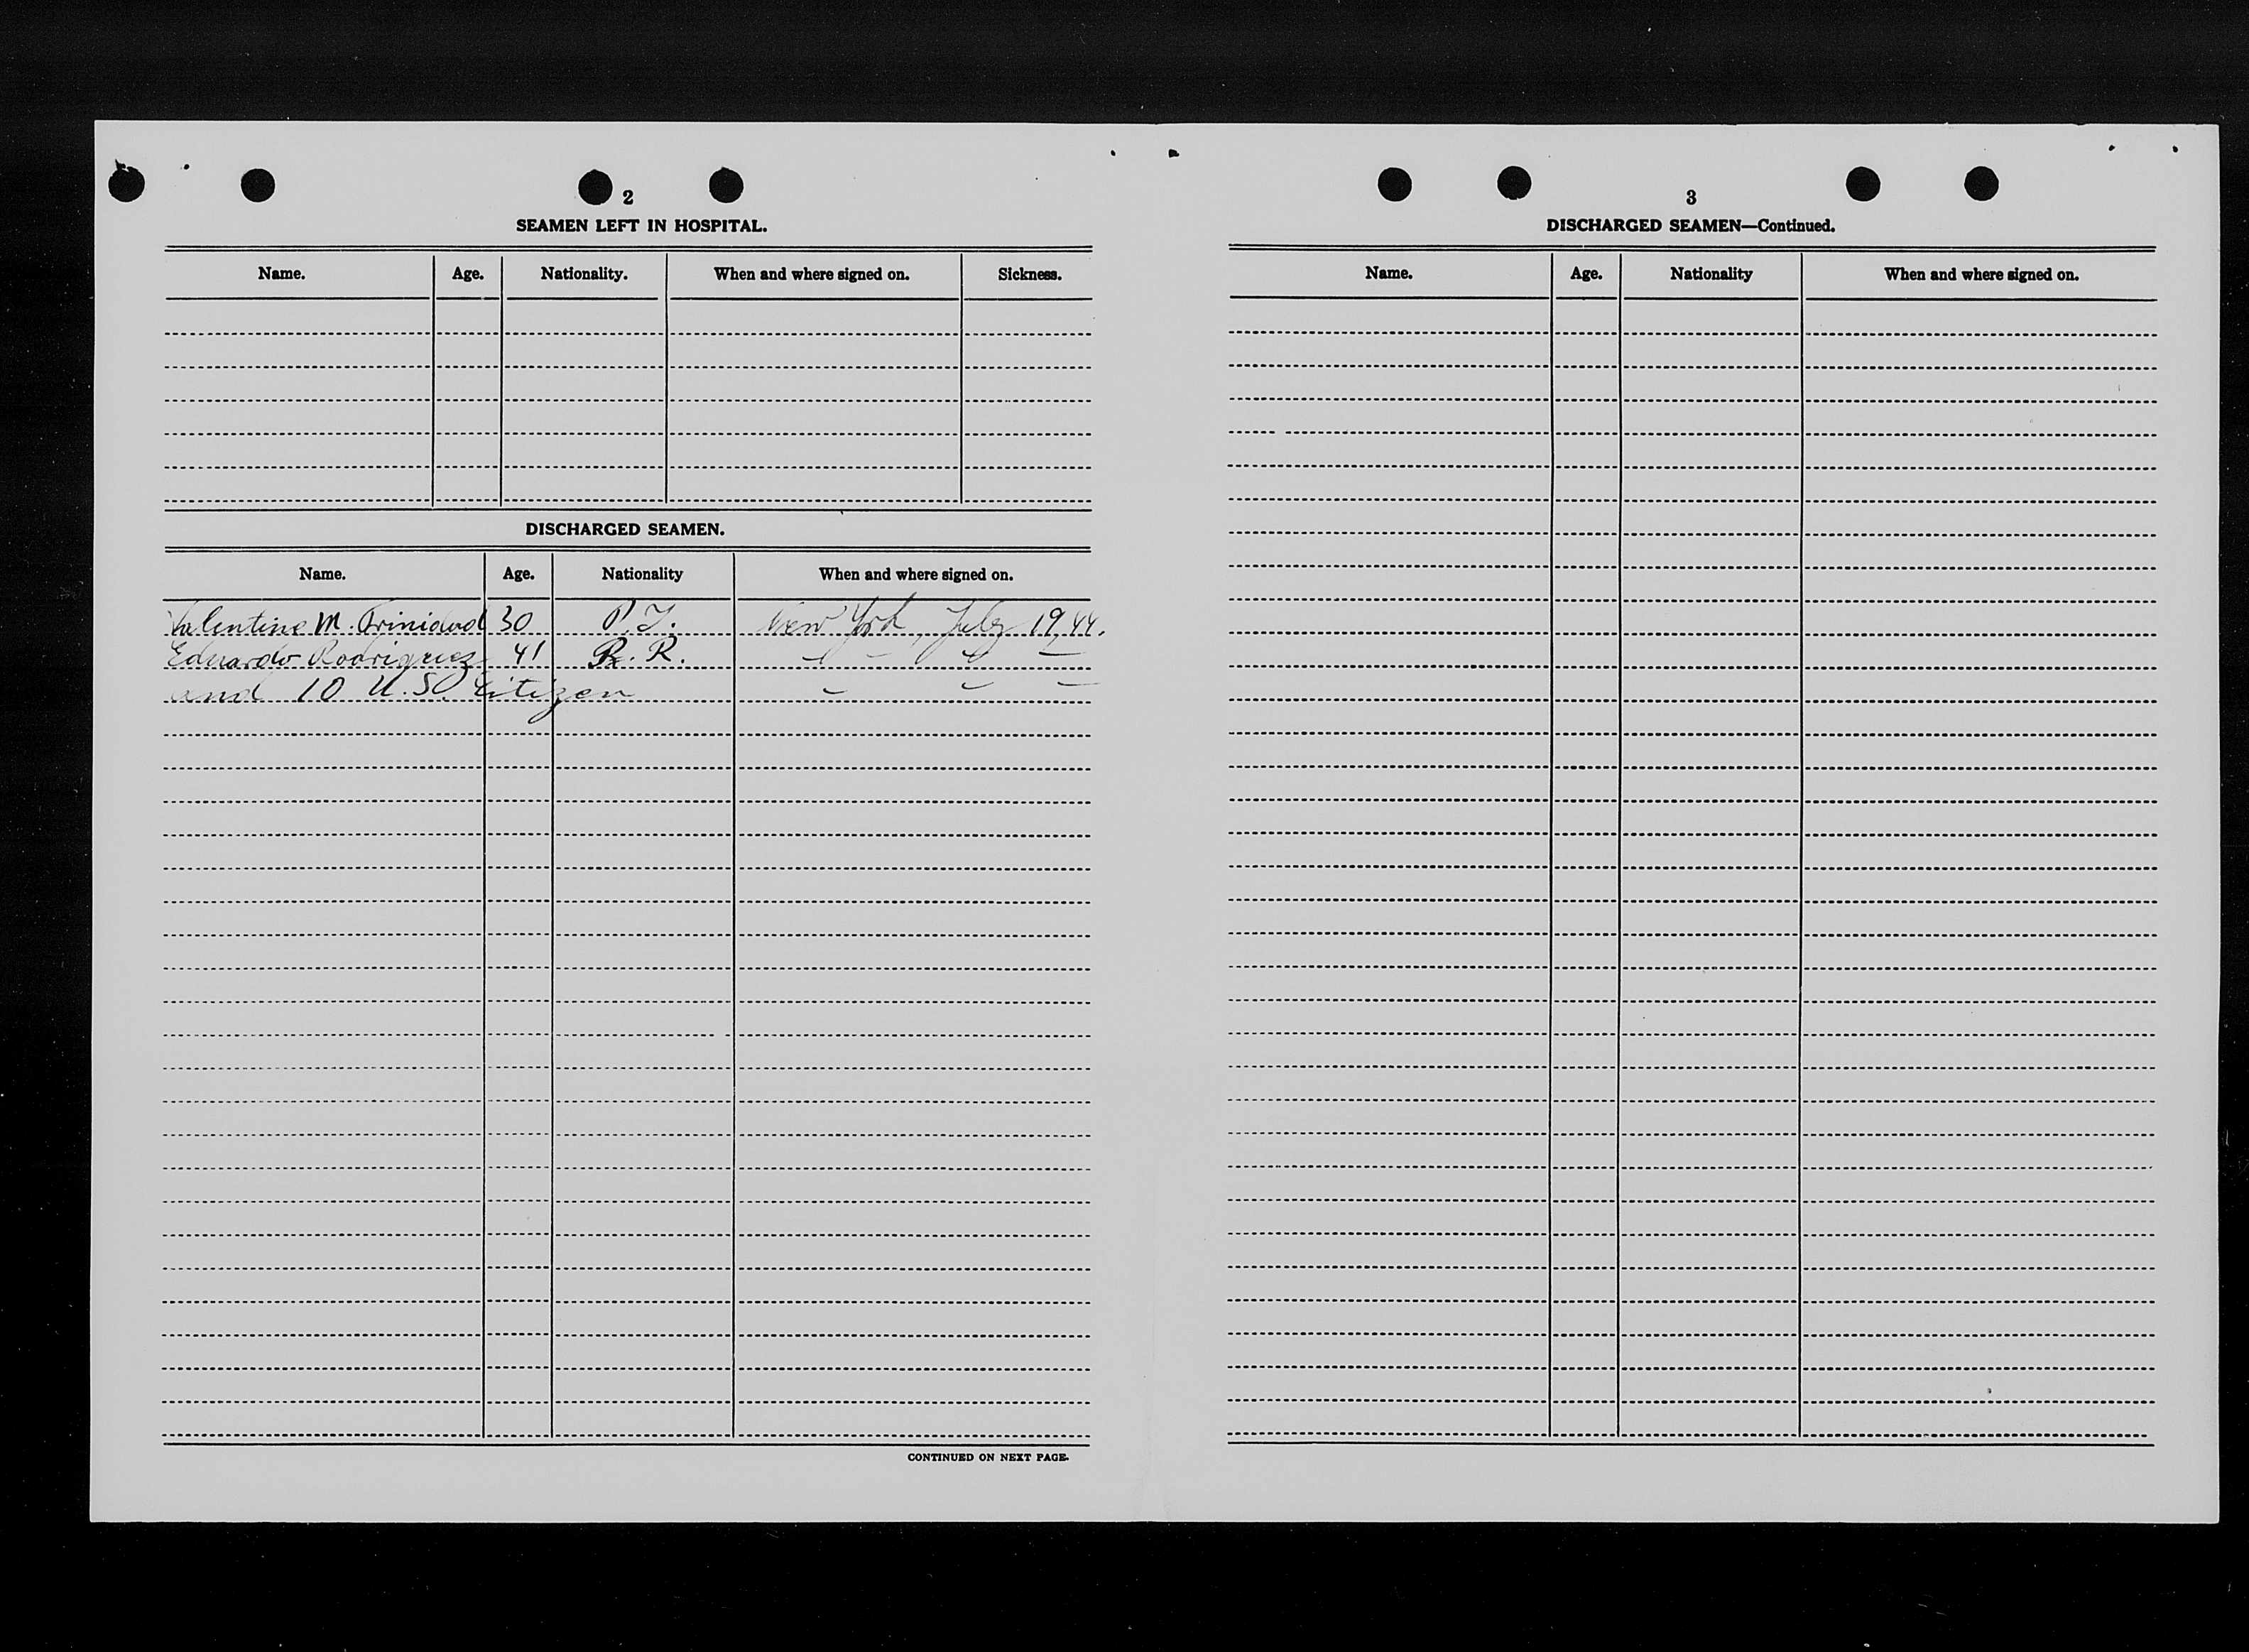 2
SEAMEN LEFT IN HOSPITAL.
Name. Age. Nationality. When and where signed on. Sickness.
DISCHARGED SEAMEN.
Name. Age. Nationality When and where signed on.
Valentine M. Trinidad 30 P.I. New York, July 19, 44.
Eduardo Rodriguez 41 P. R. " " " "
and 10 U.S. Citizen " " "
CONTINUED ON NEXT PAGE.
3
DISCHARGED SEAMEN—Continued.
Name. Age. Nationality When and where signed on.